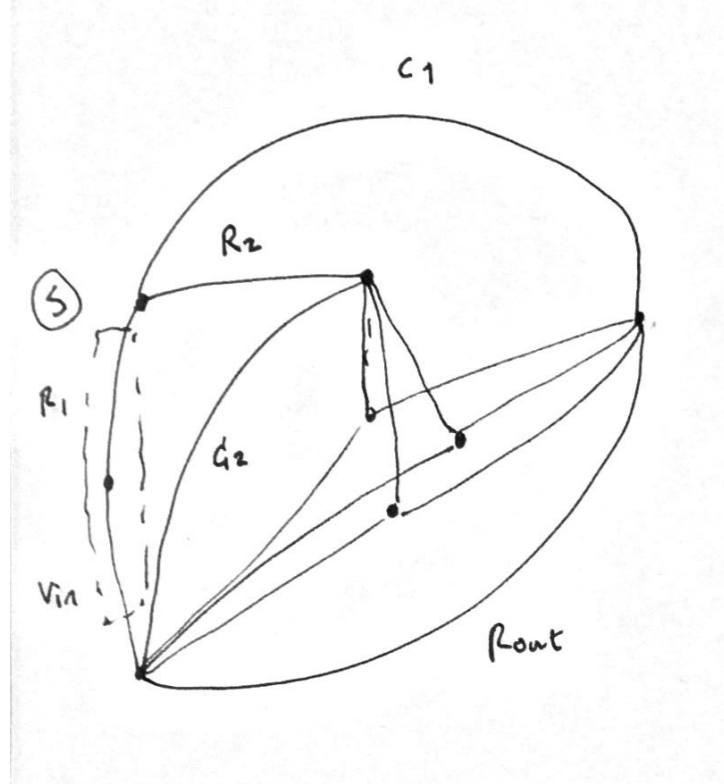 C1
R2
5
R1
C2
Vin
Rout